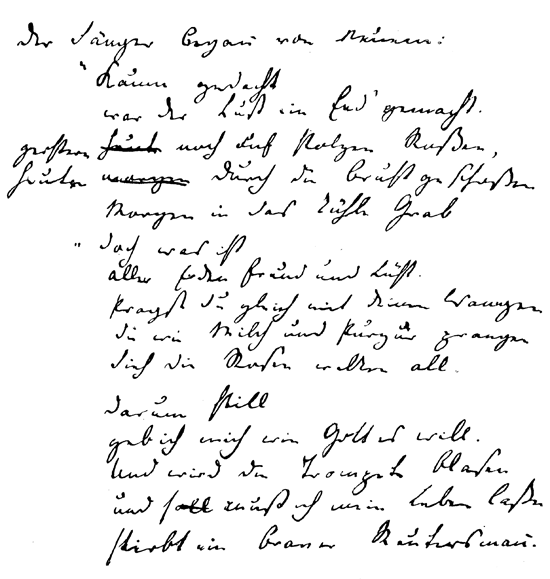 der Sänger begann von Neuem:
"Kaum gedacht
war der Lust ein End' gemacht.
gestern heute noch auf stolzen Roßen,
heute morgen durch die Brust geschoßen
Morgen in das kühle Grab
"doch was ist
aller Erden Freud und Lust.
Prangst du gleich mit deinen Wangen
die wie Milch und Purpur prangen
Sieh die Rosen welken all.
darum still
geb ich mich wie Gott es will.
Und wird die Trompete blasen
und soll muß ich mein Leben laßen
stirbt ein braver Reutersman.